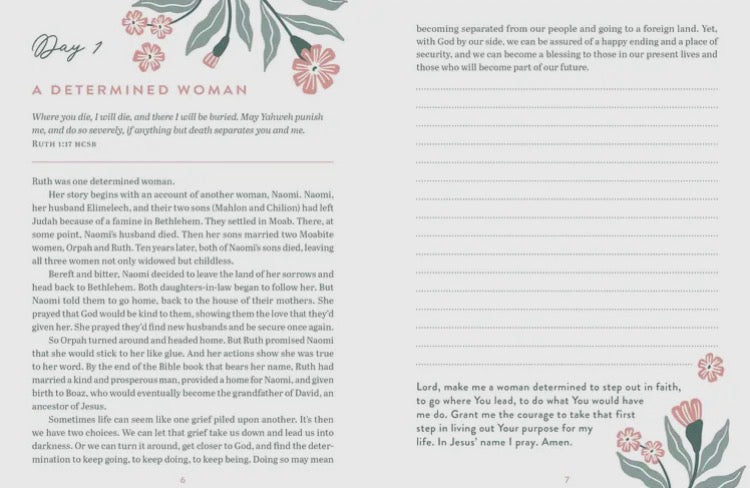 Day 1
A DETERMINED WOMAN
Where you die, I will die, and there I will be buried. May Yahweh punish
me, and do so severely, if anything but death separates you and me.
RUTH 1:17 HCSB
Ruth was one determined woman.
Her story begins with an account of another woman, Naomi. Naomi,
her husband Elimelech, and their two sons (Mahlon and Chilion) had left
Judah because of a famine in Bethlehem. They settled in Moab. There, at
some point, Naomi's husband died. Then her sons married two Moabite
women, Orpah and Ruth. Ten years later, both of Naomi's sons died, leaving
all three women not only widowed but childless.
Bereft and bitter, Naomi decided to leave the land of her sorrows and
head back to Bethlehem. Both daughters-in-law began to follow her. But
Naomi told them to go home, back to the house of their mothers. She
prayed that God would be kind to them, showing them the love that they'd
given her. She prayed they'd find new husbands and be secure once again.
So Orpah turned around and headed home. But Ruth promised Naomi
that she would stick to her like glue. And her actions show she was true
to her word. By the end of the Bible book that bears her name, Ruth had
married a kind and prosperous man, provided a home for Naomi, and given
birth to Boaz, who would eventually become the grandfather of David, an
ancestor of Jesus.
Sometimes life can seem like one grief piled upon another. It's then
we have two choices. We can let that grief take us down and lead us into
darkness. Or we can turn it around, get closer to God, and find the deter-
mination to keep going, to keep doing, to keep being. Doing so may mean
6
becoming separated from our people and going to a foreign land. Yet,
with God by our side, we can be assured of a happy ending and a place of
security, and we can become a blessing to those in our present lives and
those who will become part of our future.
Lord, make me a woman determined to step out in faith,
to go where You lead, to do what You would have
me do. Grant me the courage to take that first
step in living out Your purpose for my
life. In Jesus' name I pray. Amen.
7